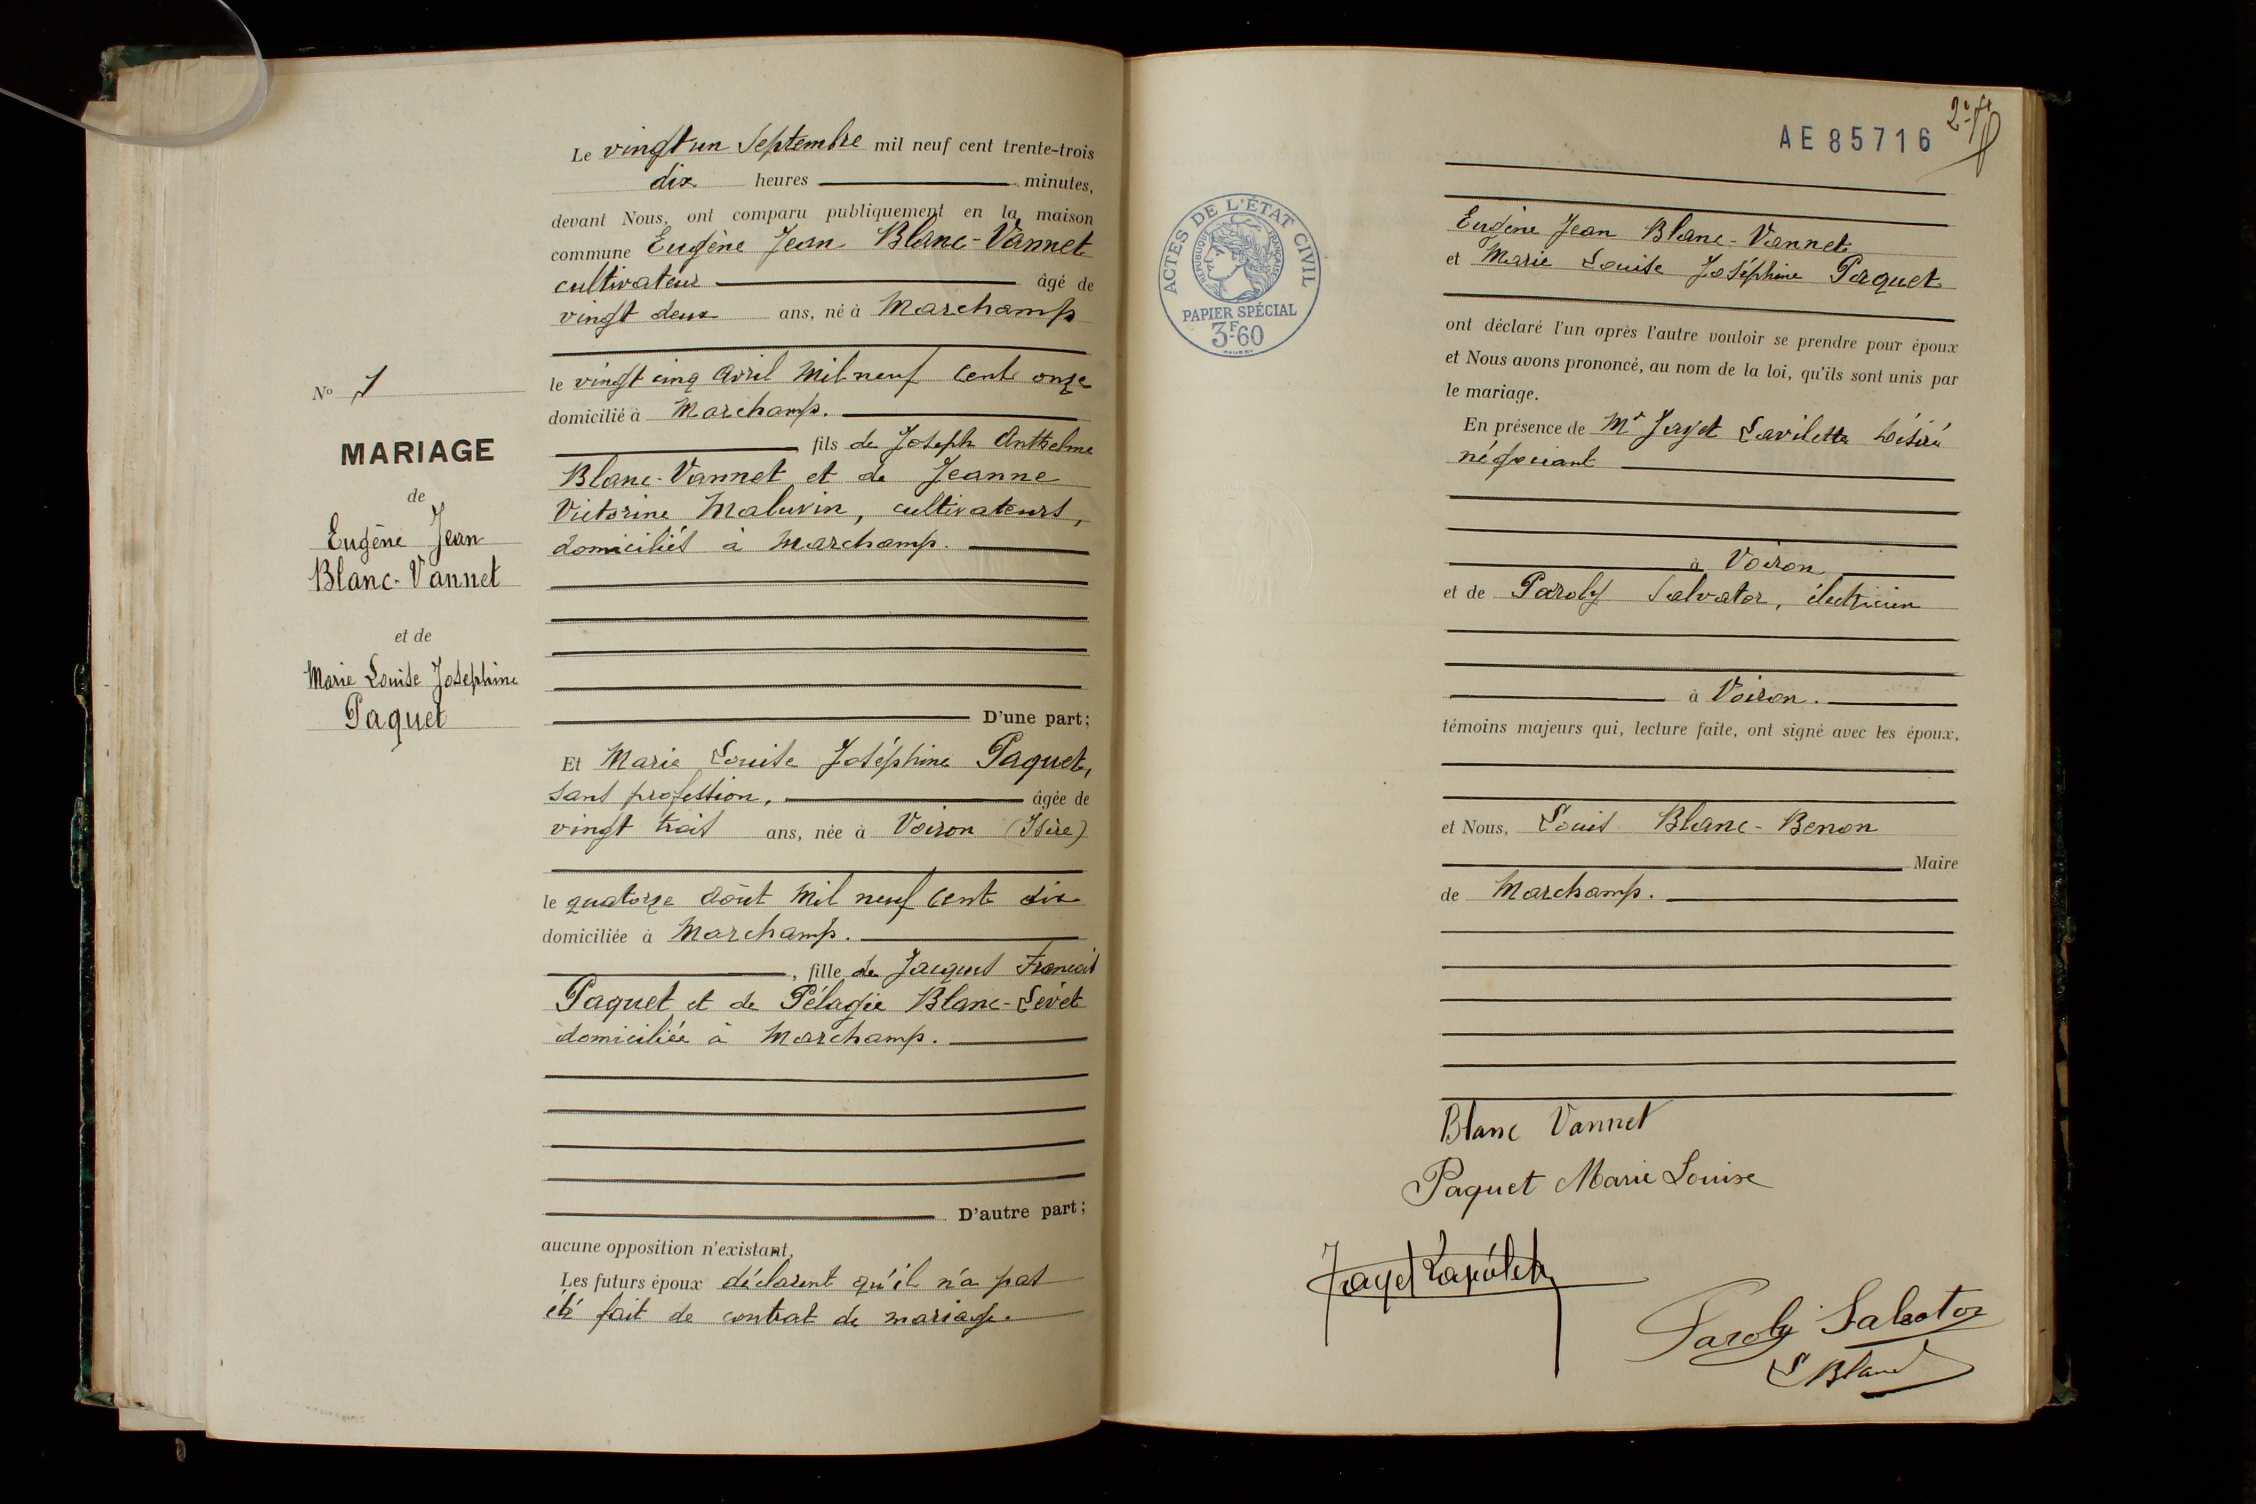 Le vingt un Septembre mil neuf cent trente-trois
dix heures minutes,
devant Nous, ont comparu publiquement en la maison
commune Eugène Jean Blanc-Vannet
cultivateur âgé de
vingt deux ans, né à Marchamp
le vingt cinq Avril Mil neuf Cent onze
domicilié à Marchamp.
fils de Joseph Anthelme
Blanc-Vannet et de Jeanne
Victorine Maluvin, cultivateurs,
domiciliés à Marchamp.
D'une part;
Et Marie Louise Joséphine Paquet,
sans profession, âgée de
vingt trois ans, née à Voiron (Isère)
le quatorze Août Mil neuf Cent dix
domiciliée à Marchamp.
, fille de Jacques Francois
Paquet et de Pélagie Blanc-Levet
domiciliée à Marchamp.
D'autre part;
aucune opposition n'existant,
Les futurs époux déclarent qu'il n'a pas
été fait de contrat de mariage.
No
MARIAGE
de
Eugène Jean
Blanc-Vannet
et de
Marie Louise Josephine
Paquet
AE 85716
ACTES DE L'ÉTAT CIVIL
RÉPUBLIQUE FRANÇAISE
PAPIER SPÉCIAL
3F60
Eugène Jean Blanc-Vannet
et Marie Louise Joséphine Paquet
ont déclaré l'un après l'autre vouloir se prendre pour époux
et Nous avons prononcé, au nom de la loi, qu'ils sont unis par
le mariage.
En présence de Mr Désiré
négociant
à Voiron
et de Paroly Salvator, électricien
à Voiron.
témoins majeurs qui, lecture faite, ont signé avec les époux,
et Nous, Louis Blanc-Benon
Maire
de Marchamp.
Blanc Vannet
Paquet Marie Louise
Paroly Salvator
L Blanc